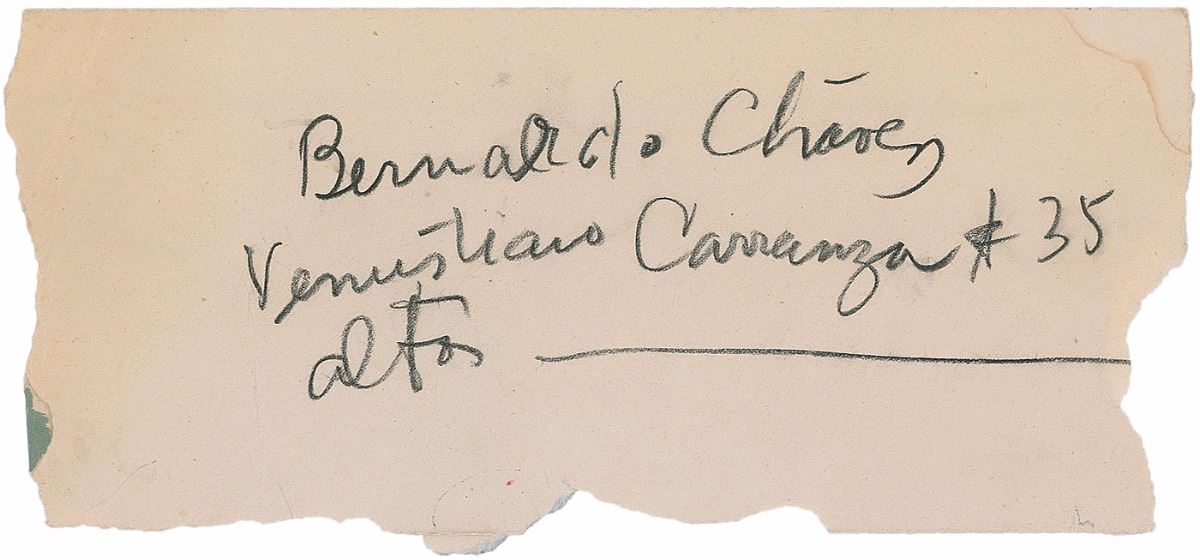 Bernaldo Cháves
Venustiano Carranza # 35
altos